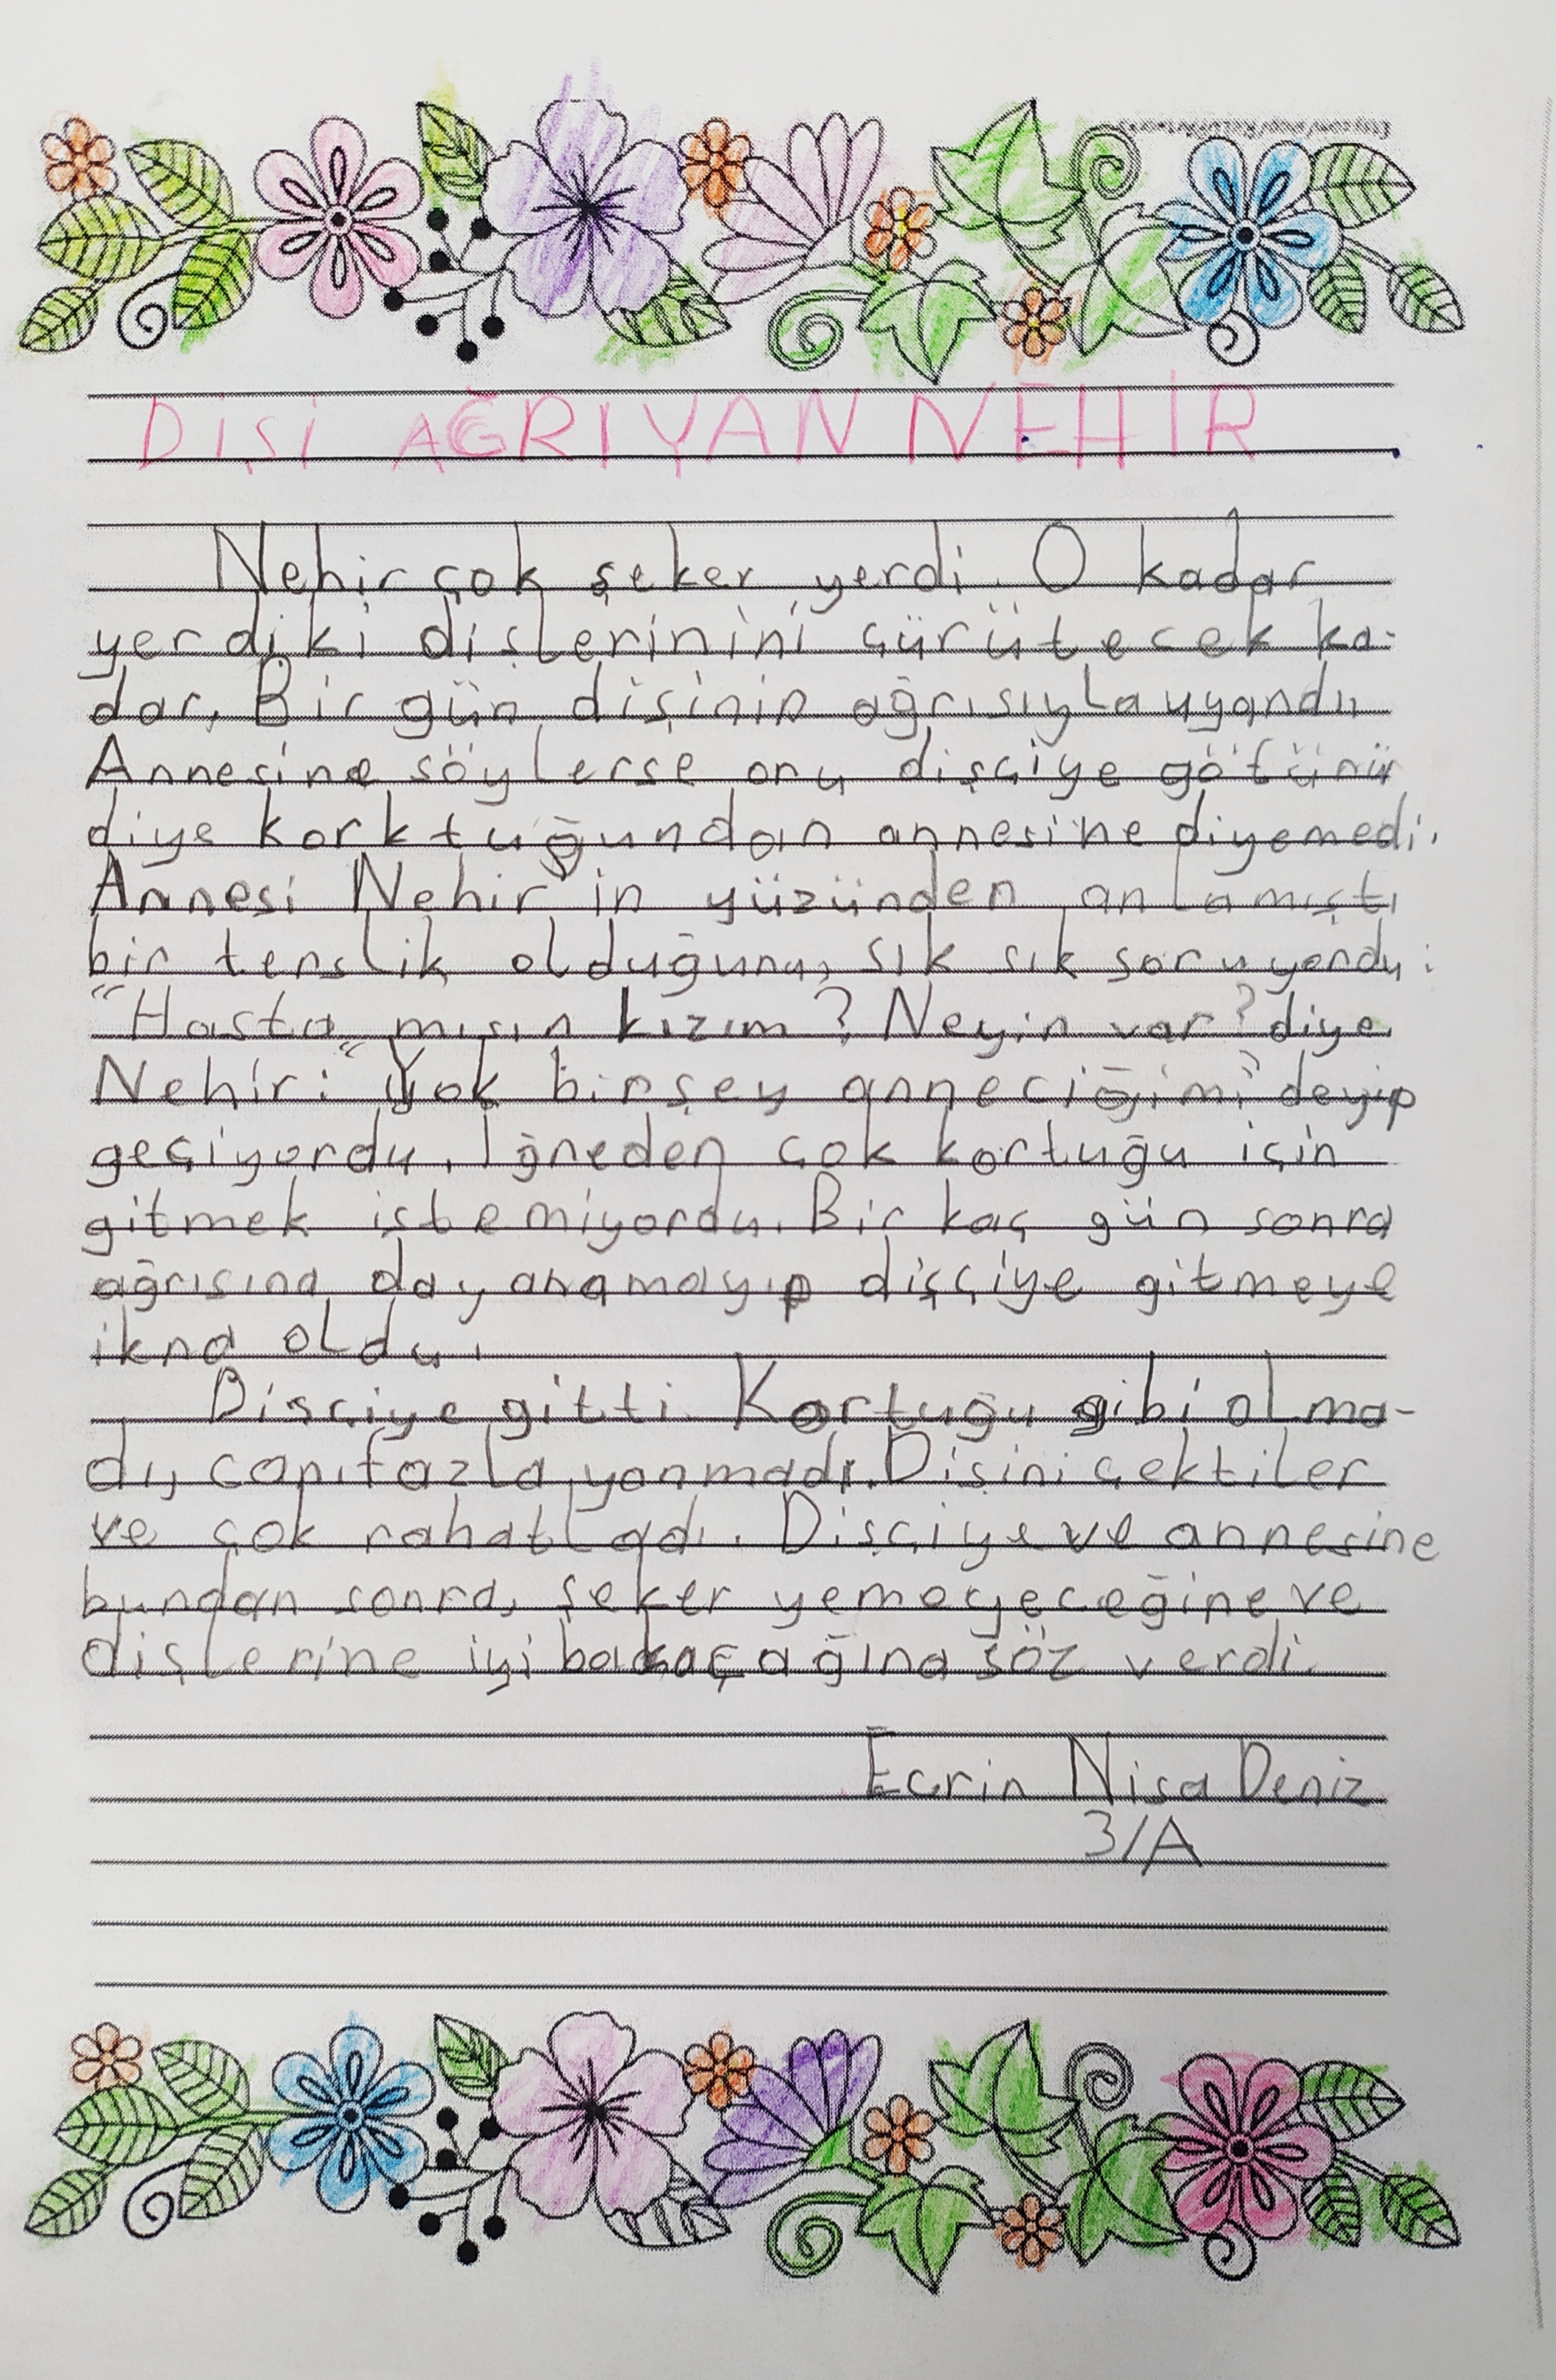 DİŞİ AĞRIYAN NEHİR
Nehir çok şeker yerdi. O kadar
yerdiki dişlerinini çürütecek ka-
dar. Bir gün dişinin ağrısıyla uyandı
Annesine söylerse onu dişçiye götürür
diye korktuğundan annesine diyemedi.
Annesi Nehir'in yüzünden anlamıştı
bir terslik olduğunu, sık sık soruyordu:
"Hasta mısın kızım? Neyin var? diye
Nehir: "Yok birşey anneciğim" deyip
geçiyordu. Iğneden çok kortuğu için
gitmek istemiyordu. Bir kaç gün sonra
ağrısına dayanamayıp dişçiye gitmeye
ikna oldu.
Dişçiye gitti. Kortuğu gibi olma-
dı, canı fazla yanmadı. Dişini çektiler
ve çok rahatladı. Dişçiye ve annesine
bundan sonra, şeker yemeyeceğine ve
dişlerine iyi bakacağına söz verdi.
Ecrin Nisa Deniz
3/A